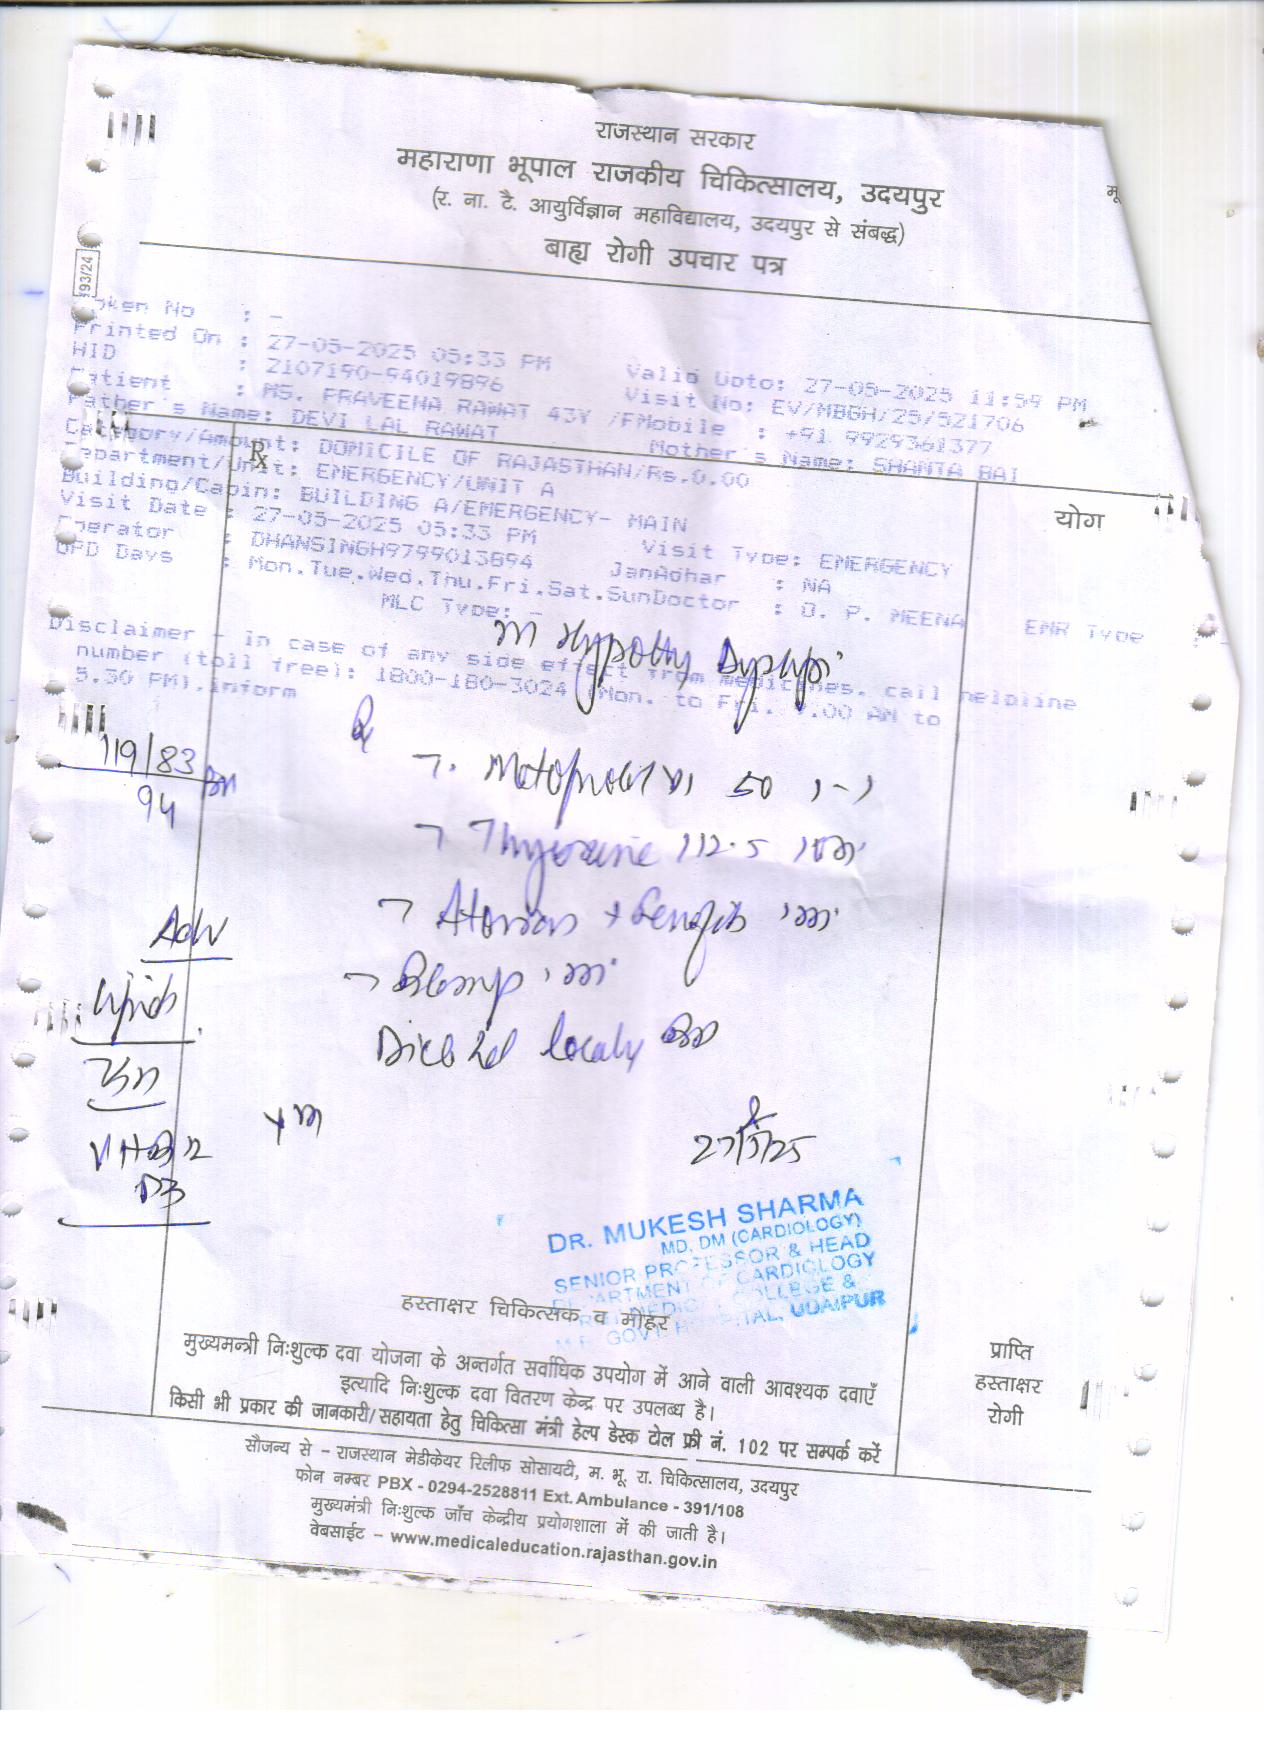 राजस्थान सरकार
महाराणा भूपाल राजकीय चिकित्सालय, उदयपुर
(र. ना. टै. आयुर्विज्ञान महाविद्यालय, उदयपुर से संबद्ध)
बाह्य रोगी उपचार पत्र
मू
93/24
Token No : -
Printed On : 27-05-2025 05:33 PM Valid Upto: 27-05-2025 11:59 PM
HID : 2107190-94019896 Visit No: EV/MBGH/25/521706
Patient : MS. PRAVEENA RAWAT 43Y /F Mobile : +91 9929361377
Father's Name: DEVI LAL RAWAT Mother's Name: SHANTA BAI
Category/Amount: DOMICILE OF RAJASTHAN/Rs.0.00
Department/Unit: EMERGENCY/UNIT A
Building/Cabin: BUILDING A/EMERGENCY- MAIN
Visit Date : 27-05-2025 05:33 PM Visit Type: EMERGENCY
Operator : DHANSINGH9799013894 JanAdhar : NA
OPD Days : Mon.Tue.Wed.Thu.Fri.Sat.Sun Doctor : O. P. MEENA EMR Type :
MLC Type: -
Disclaimer - in case of any side effect from medicines, call helpline
number (toll free): 1800-180-3024 (Mon. to Fri. 9.00 AM to
5.30 PM).inform
Rx
योग
119/83
94
50 1-1
Thyroxine 112.5
Adv
Lipids
locally
Vit B12
D3
27/5/25
DR. MUKESH SHARMA
MD, DM (CARDIOLOGY)
SENIOR PROFESSOR & HEAD
DEPARTMENT OF CARDIOLOGY
MEDICAL COLLEGE &
GOVT. HOSPITAL, UDAIPUR
हस्ताक्षर चिकित्सक व मोहर
मुख्यमन्त्री निःशुल्क दवा योजना के अन्तर्गत सर्वाधिक उपयोग में आने वाली आवश्यक दवाएँ
इत्यादि निःशुल्क दवा वितरण केन्द्र पर उपलब्ध है।
किसी भी प्रकार की जानकारी/सहायता हेतु चिकित्सा मंत्री हेल्प डेस्क टोल फ्री नं. 102 पर सम्पर्क करें
प्राप्ति
हस्ताक्षर
रोगी
सौजन्य से – राजस्थान मेडीकेयर रिलीफ सोसायटी, म. भू. रा. चिकित्सालय, उदयपुर
फोन नम्बर PBX - 0294-2528811 Ext. Ambulance - 391/108
मुख्यमंत्री निःशुल्क जाँच केन्द्रीय प्रयोगशाला में की जाती है।
वेबसाईट – www.medicaleducation.rajasthan.gov.in